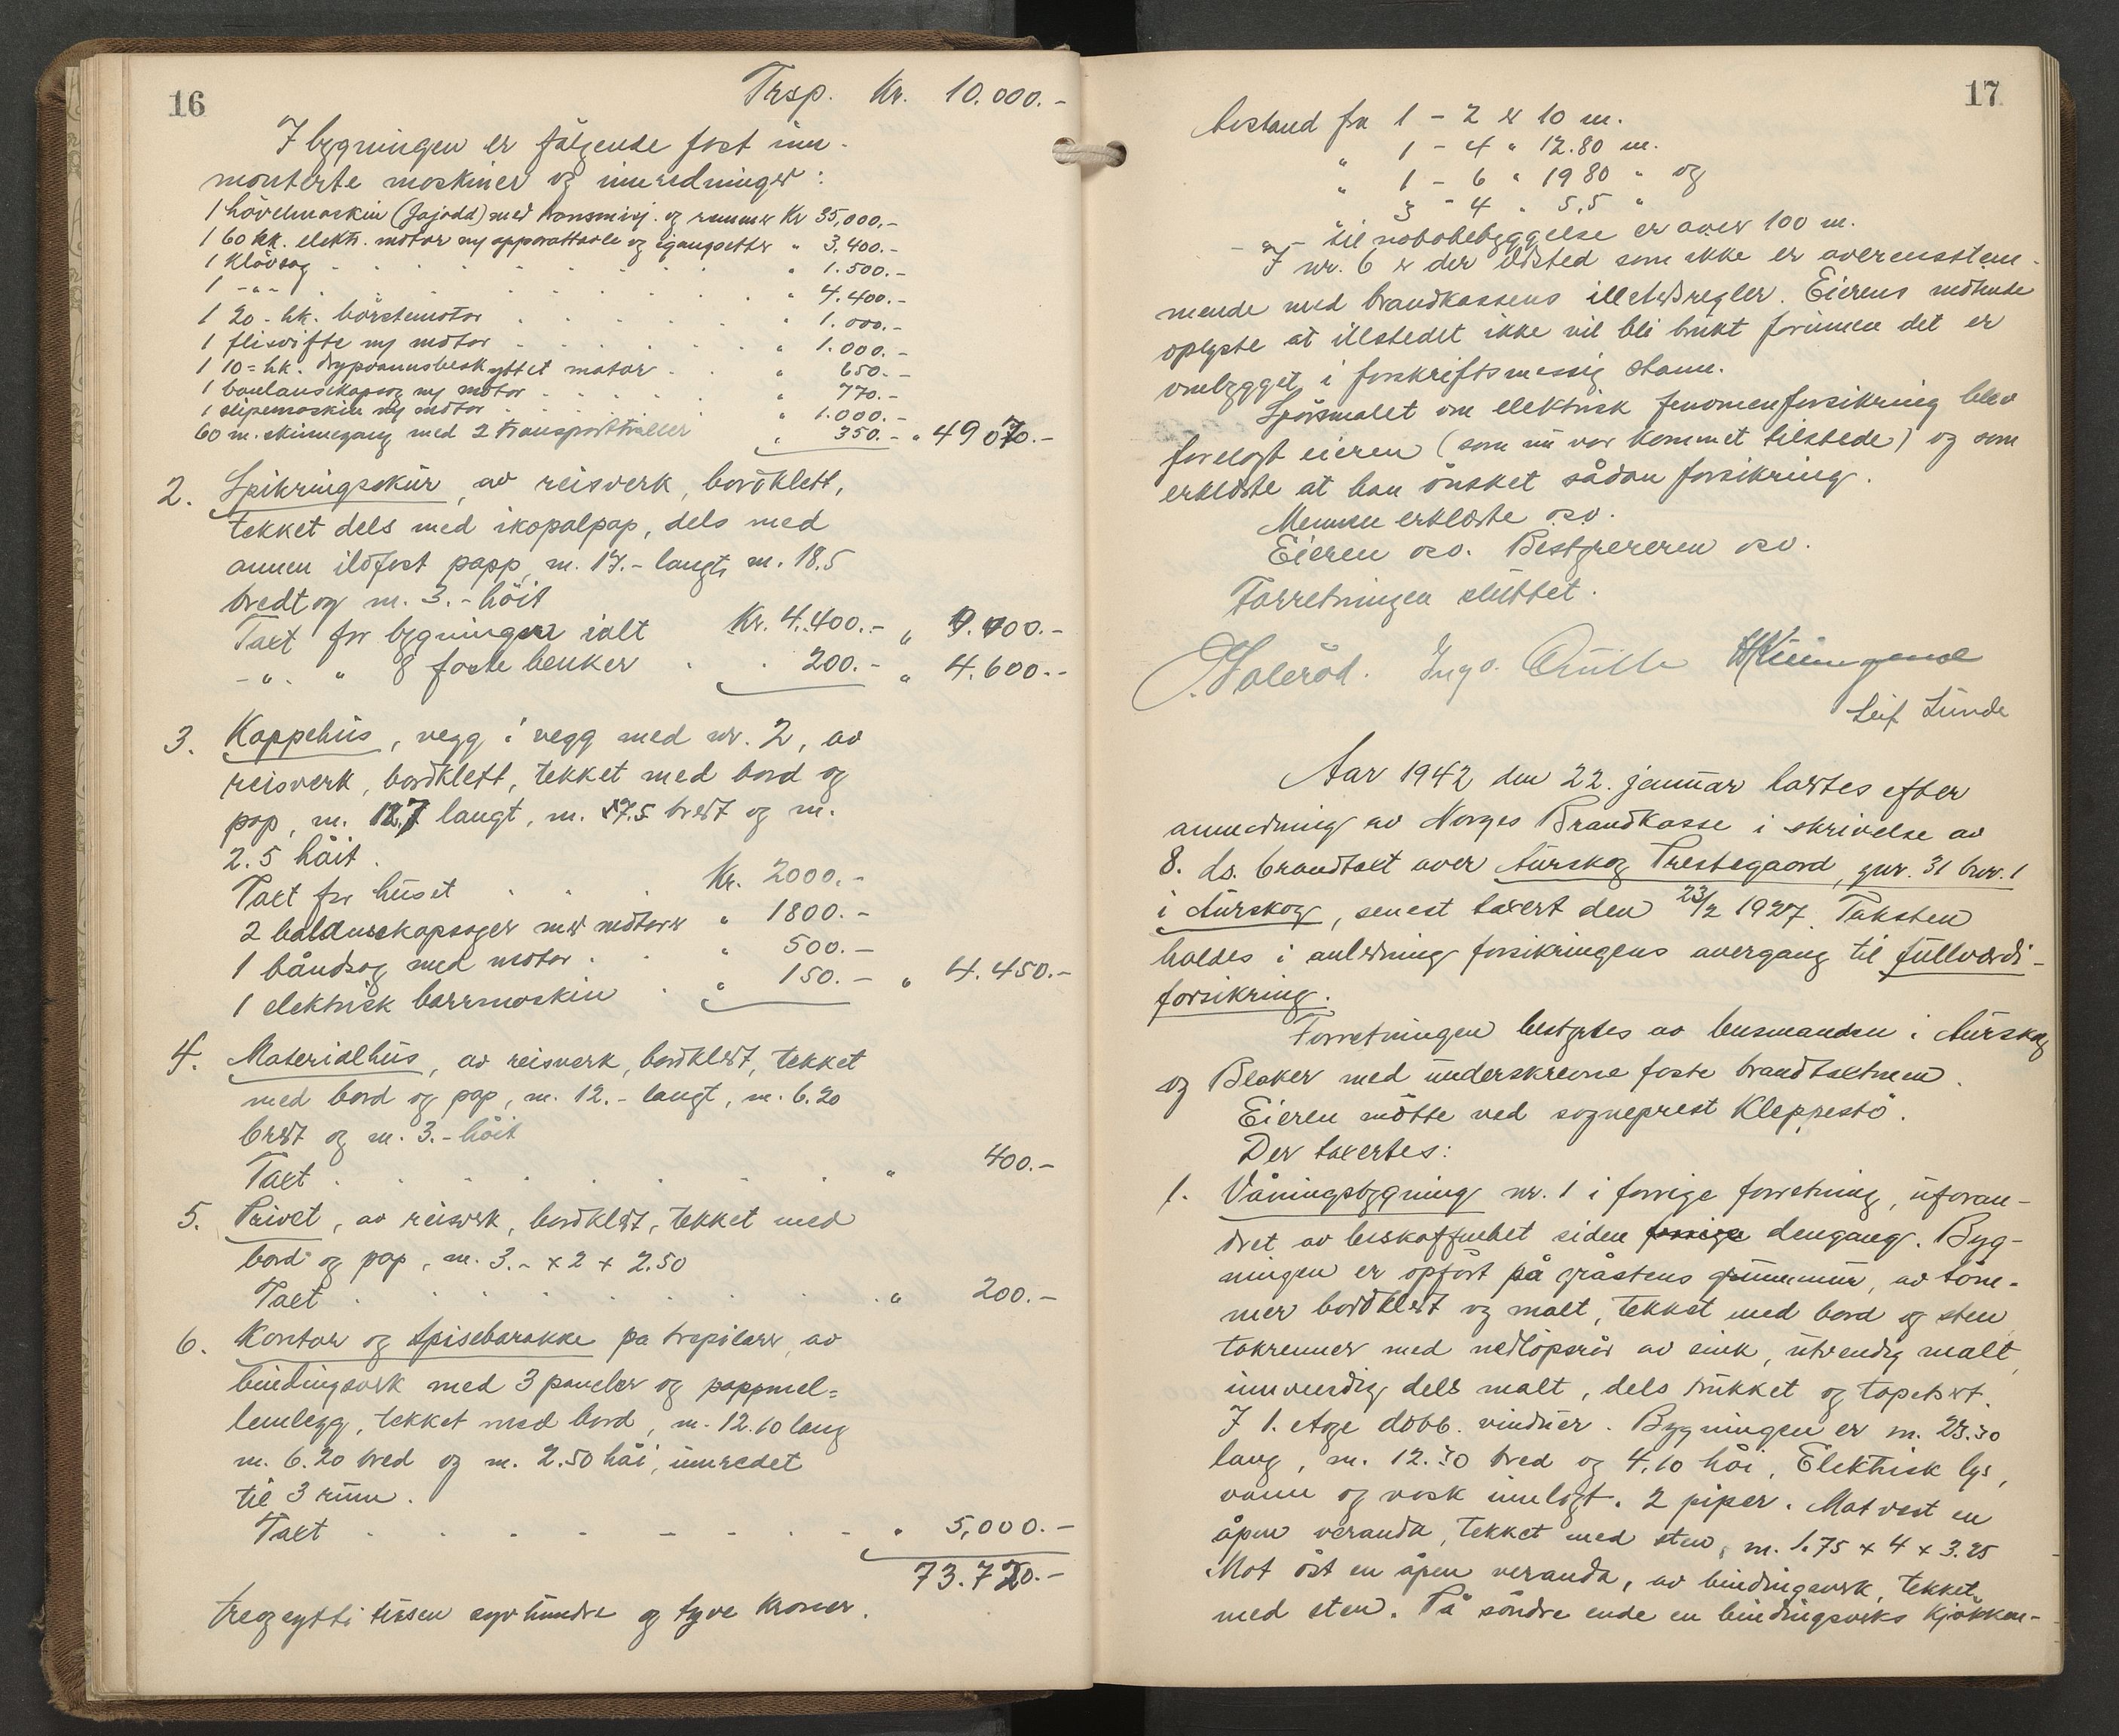 16
Trsp. Kr. 10.000.-
I bygningen er følgende fast inn-
monterte maskiner og innredninger:
1 hövelmaskin (Jajodd) med transmisj. og remmer Kr 35,000,-
1 60 hk. elektr. motor ny apparattavle og igangsetter " 3,400.-
1 Klövsag . . . " 1.500.-
1 -"- . . . " 4.400.-
1 20-hk. börstemotor . . . " 1.000.-
1 flisvifte m/ motor . . . " 1.000.-
1 10=hk. drypvannsbeskyttet motor . . " 650.-
1 baulanskapsag m/ motor . . . " 770.-
1 slipemaskin m/ motor . . . " 1.000.-
60 m. skinnegang med 2 transporttraller " 350.- " 49070.-
2. Spikringsskur, av reisverk, bordklett,
tekket dels med ikopalpap, dels med
annen ildfast papp, m. 17.- langt, m. 18.5
bredt og m. 3.- höit
Taxt for bygningen ialt Kr. 4.400.- "
-"- " 8 faste benker . . 200.- " 4.600.-
3. Kappehus, vegg i vegg med nr. 2, av
reisverk, bordklett, tekket med bord og
pap, m. 12.7 langt, m. 7.5 bredt og m.
2.5 höit.
Taxt for huset . . . Kr. 2000.-
2 balduskapsager med motorer " 1800.-
1 båndsag med motor . . " 500.-
1 elektrisk borrmaskin . " 150.- " 4.450.-
4. Materialhus, av reisverk, bordkledt, tekket
med bord og pap, m. 12.- langt, m. 6.20
bredt og m. 3.- höit
Taxt . . . " 400.-
5. Privet, av reisverk, bordkledt, tekket med
bord og pap, m. 3.- x 2 x 2.50
Taxt . . . " 200.-
6. Kontor og Spisebarakke på trepilarer, av
bindingsverk med 3 paneler og pappmel-
lemlegg, tekket med bord, m. 12.10 lang
m. 6.20 bred og m. 2.50 höi, innredet
til 3 rum.
Taxt . . . " 5,000.-
73.720.-
treogsytti tusen syv hundre og tyve kroner.
17
Avstand fra 1 - 2 er 10 m.
" 1 - 4 " 12.80 m.
" 1 - 6 " 19 80 " og
" 3 - 4 " 5,5 "
-"- til nabobebyggelse er over 100 m.
I nr. 6 er der ildsted som ikke er overensstem-
mende med brandkassens illstedsregler. Eierens
oplyste at illstedet ikke vil bli brukt forinnen det er
ombygget i forskriftsmessig stann.
Spörsmalet om elektrisk fenomenforsikring blev
forelagt eieren (som nu var kommet tilstede) og som
erklærte at han önsket sådan forsikring.
Mennene erklærte osv.
Eieren osv. Bestyreren osv.
Forretningen sluttet.
Holeröd. Ingv.
Leif Lunde
Aar 1942 den 22. januar holdtes efter
anmodning av Norges Brandkasse i skrivelse av
8. ds. brandtaxt over Aurskog Prestegaard, gnr. 31 bnr. 1
i Aurskog, senest taxert den 23/2 1927. Taksten
holdes i anledning forsikringens overgang til fullverdi-
forsikring.
Forretningen bestyrtes av lensmanden i Aurskog
og Blaker med underskrevne faste brandtaxtmenn.
Eieren mötte ved sogneprest Kleppestö.
Der taxertes:
1. Våningsbygning nr. 1 i forrige forretning, uforan-
dret av beskaffenhet siden forrige dengang. Byg-
ningen er opfört på gråstens grunnmur, av töm-
mer bordkledt og malt, tekket med bord og sten
takrenner med nedlöpsrör av sink, utvendig malt,
innvendig dels malt, dels trukket og tapetsert.
I 1. etage dobb. vinduer. Bygningen er m. 23.30
lang, m. 12.30 bred og 4.10 höi, Elektrisk lys,
vann og vask innlagt. 2 piper. Mot vest en
åpen veranda, tekket med sten, m. 1.75 x 4 x 3.25
Mot öst en åpen veranda, av bindingsverk, tekket
med sten. På söndre ende en bindingsverks kjökken-